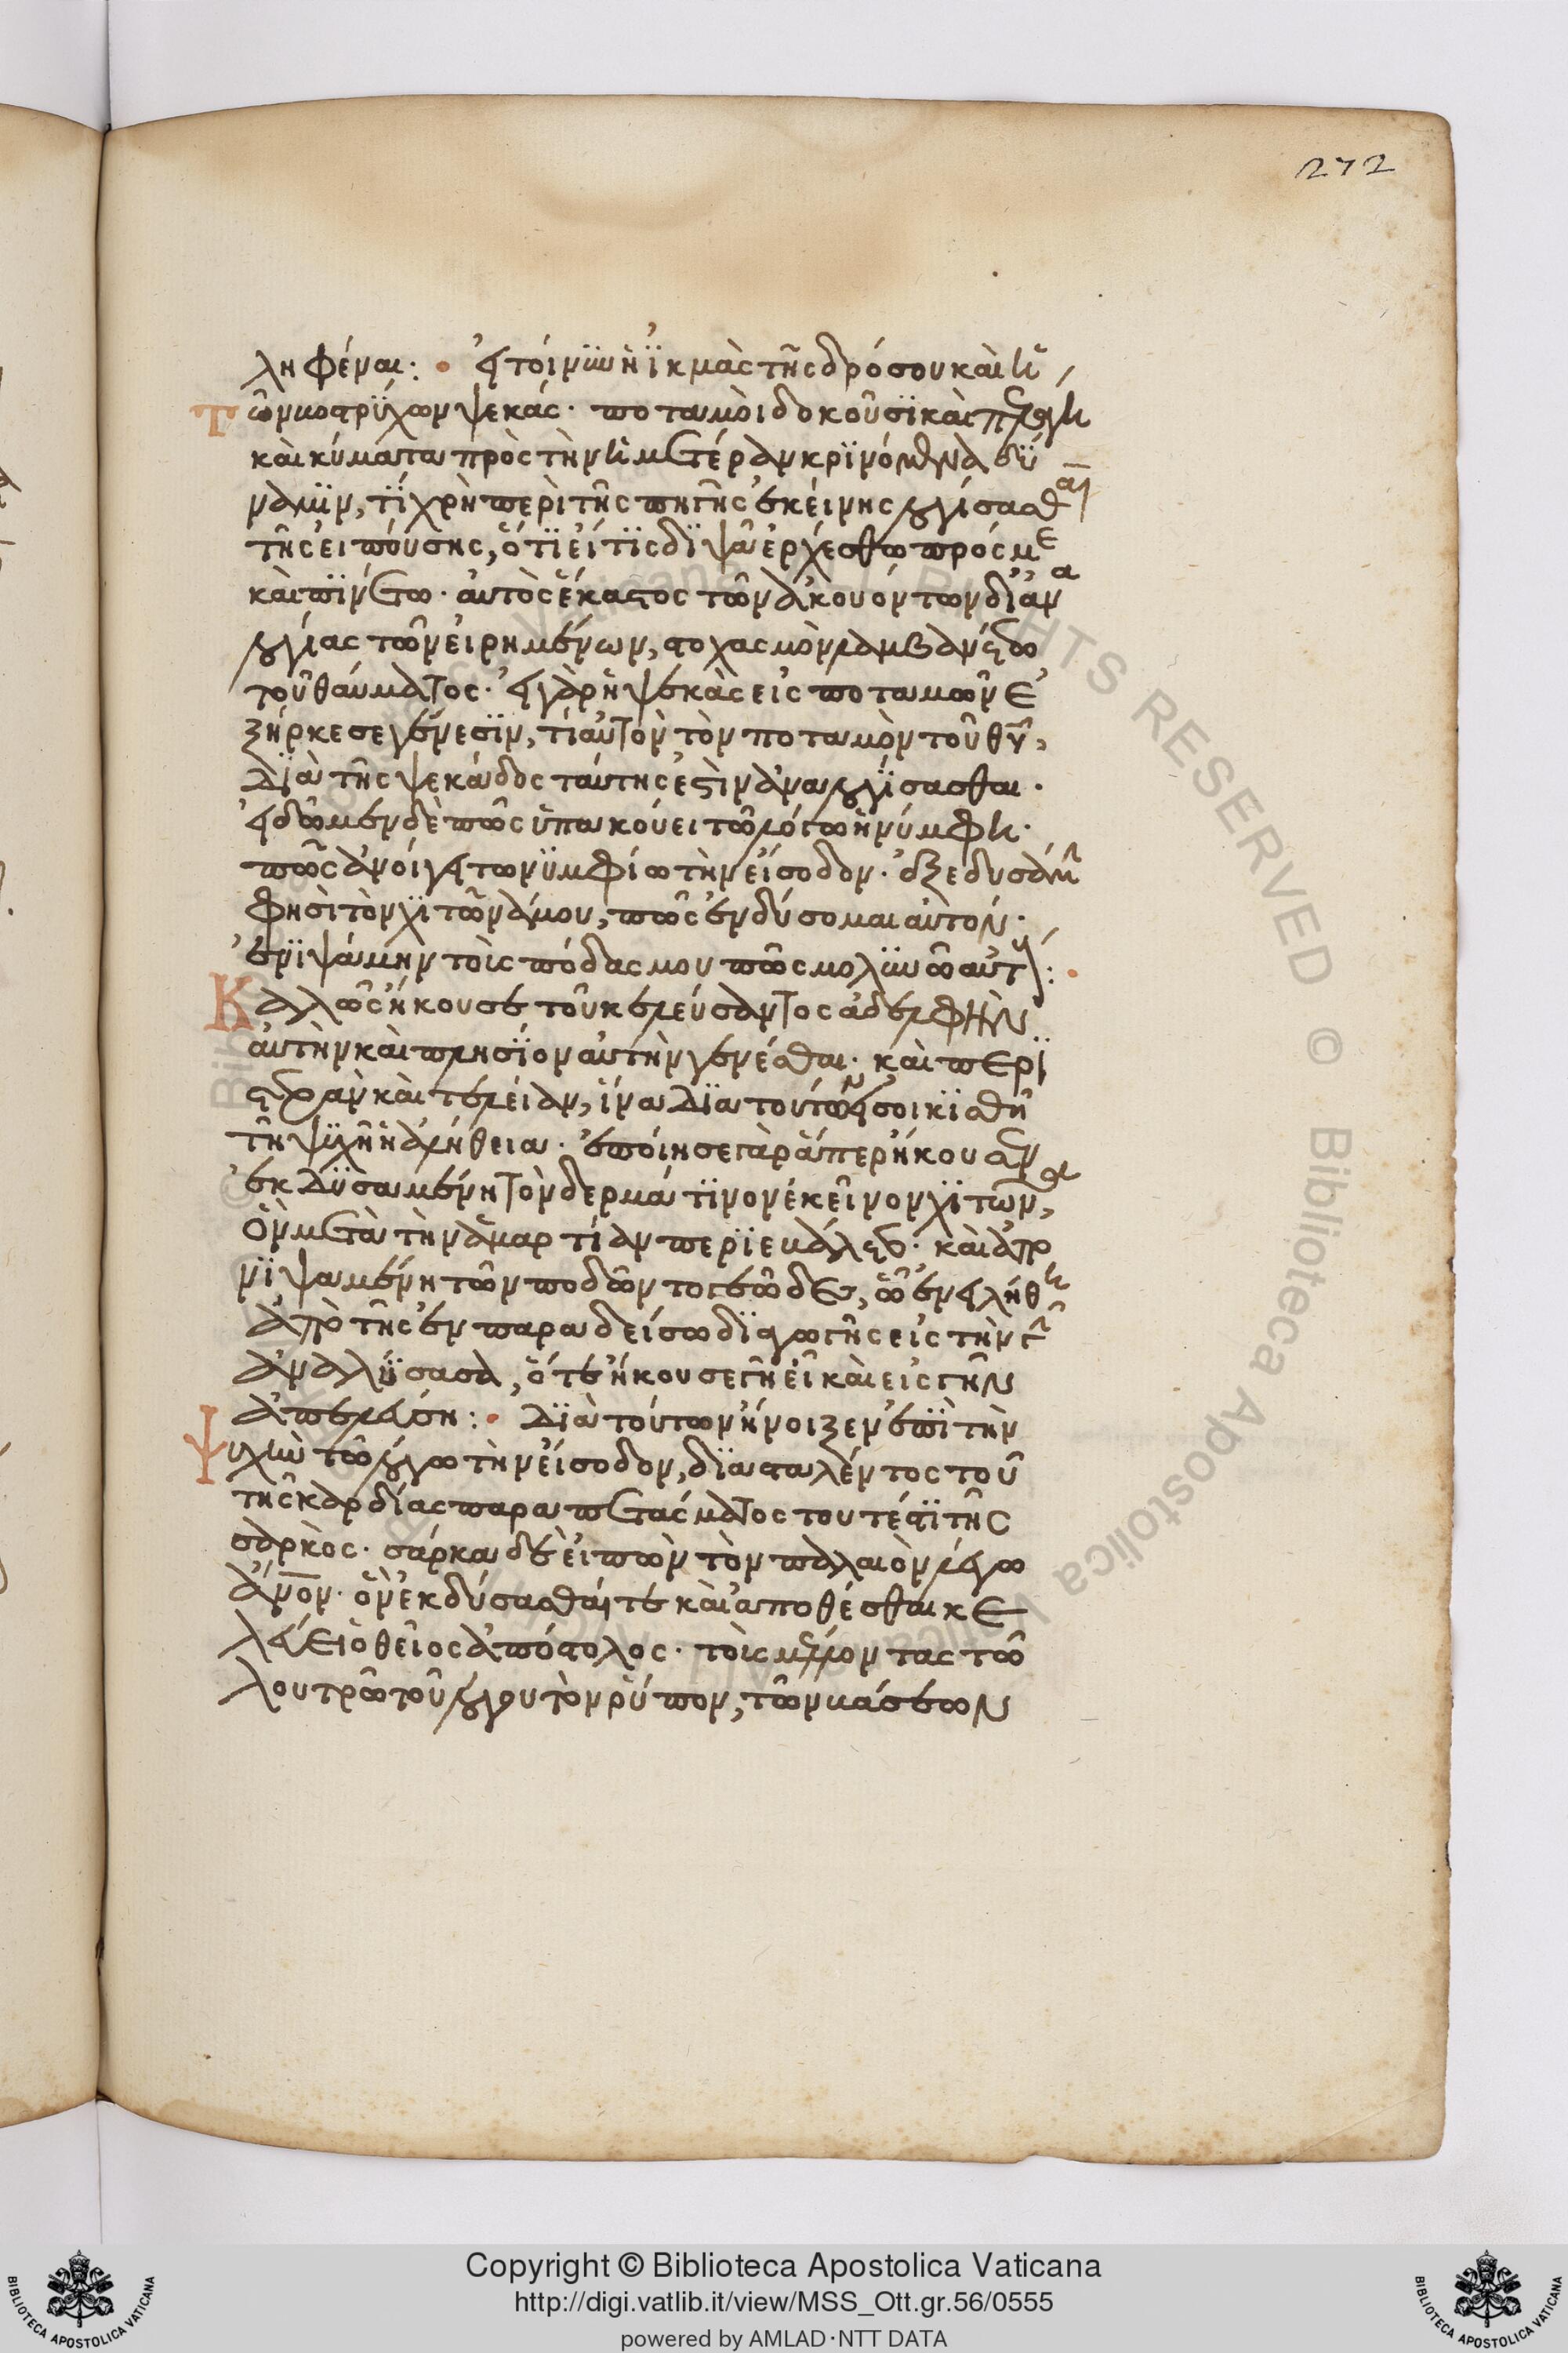 272
ληφέναι: · εἰ τοίνυν ἡ ϊκμὰς τῆς δρόσου καὶ ἡ
τῶν βοστρύχων ψεκάς· ποταμοὶ δοκοῦσϊ καὶ πελάγη
καὶ κύματα πρὸς τὴν ἡμετέραν κρϊνόμενα δύ
ναμϊν, τί χρὴ περὶ τῆς πηγῆς ἐκείνης λογίσασθαι
τῆς εἰπούσης, ὅτϊ εἴ τϊς δϊψᾶ ἐρχέσθω πρός με
καὶ πϊνέτω· αὐτὸς ἕκαστος τῶν ἀκουόντων δι᾽ ἀνα
λογίας τῶν εἰρημένων, στοχασμὸν λαμβανέτω
τοῦ θαύματος· εἰ γὰρ ἡ ψεκὰς εἰς ποταμῶν ἐ
ξήρκεσε γένεσϊν, τί αὐτὸν τὸν ποταμὸν τοῦ θῦ,
διὰ τῆς ψεκάδος ταύτης ἐστὶν ἀναλογϊσασθαι·
εἰδῶμεν δὲ πῶς ὑπακούει τῶ λόγω ἡ νύμφη·
πῶς ἀνοίγει τω νϋμφίω τὴν εἴσοδον· ἐξεδυσάμην
φησὶ τὸν χϊτῶνά μου, πῶς ἐνδύσομαι αὐτόν·
ἐνϊψάμην τοὺς πόδας μου πῶς μολϋνῶ αὐτούς: ·
Καλῶς ἤκουσε τοῦ κελεύσαντος ἀδελφὴν
αὐτὴν καὶ πλησϊον αὐτὴν γενέσθαι· καὶ περϊ
στερὰν καὶ τελείαν, ἵνα διὰ τούτων εἰσοικϊσθῆ
τῆ ψϋχῆ ἡ ἀλήθεια· ἐποίησε γὰρ ἅπερ ἤκουσεν
ἐκδϋσαμένη τὸν δερμάτϊνον ἐκεῖνον χϊτῶνα,
ὃν μετὰ τὴν ἁμαρτίαν περϊεβάλετο· καὶ ἀπο
νϊψαμένη τῶν ποδῶν τὸ γεῶδες, ὧ ἐνειλήθη
ἀπὸ τῆς ἐν παραδείσω δϊαγωγῆς εἰς τὴν γῆν
ἀναλύϊσασα, ὅτε ἤκουσε γῆ εἶ καὶ εἰς γῆν
ἀπελεύση: · Διὰ τούτων ἤνοιξεν ἐπϊ τὴν
ψυχὴν τῶ λόγω τὴν εἴσοδον, δϊασταλέντος τοῦ
τῆς καρδίας παραπετάσματος τουτέστϊ τῆς
σαρκός· σάρκα δὲ εἰπὼν τὸν παλαιὸν λέγω
ἄνον· ὃν ἐκδύσασθαί τε καὶ ἀποθέσθαι κε
λεύει ὁ θεῖος ἀπόστολος· τοὺς μέλλοντας τῶ
λουτρῶ τοῦ λόγου τὸν ῥύπον, τῶν βάσεων
Copyright © Biblioteca Apostolica Vaticana
http://digi.vatlib.it/view/MSS_Ott.gr.56/0555
powered by AMLAD·NTT DATA
BIBLIOTECA APOSTOLICA VATICANA
BIBLIOTECA APOSTOLICA VATICANA